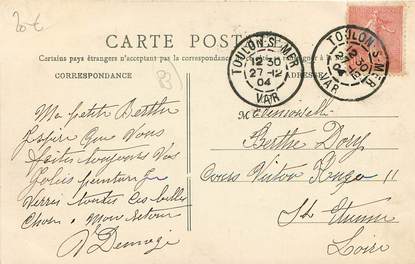 20€
CARTE POSTALE
Certains pays étrangers n'acceptent pas la correspondance
CORRESPONDANCE
ADRESSE
TOULON S-MER
12 30
27-12
04
VAR
TOULON S-MER
12 30
27-12
04
VAR
Ma petite Berthe
J'espère que vous
faites toujours vos
jolies peinture je
verrez toutes ces belles
choses à mon retour
Mademoiselle
Berthe Dory
Cours Victor Hugo 11
St Etienne
Loire